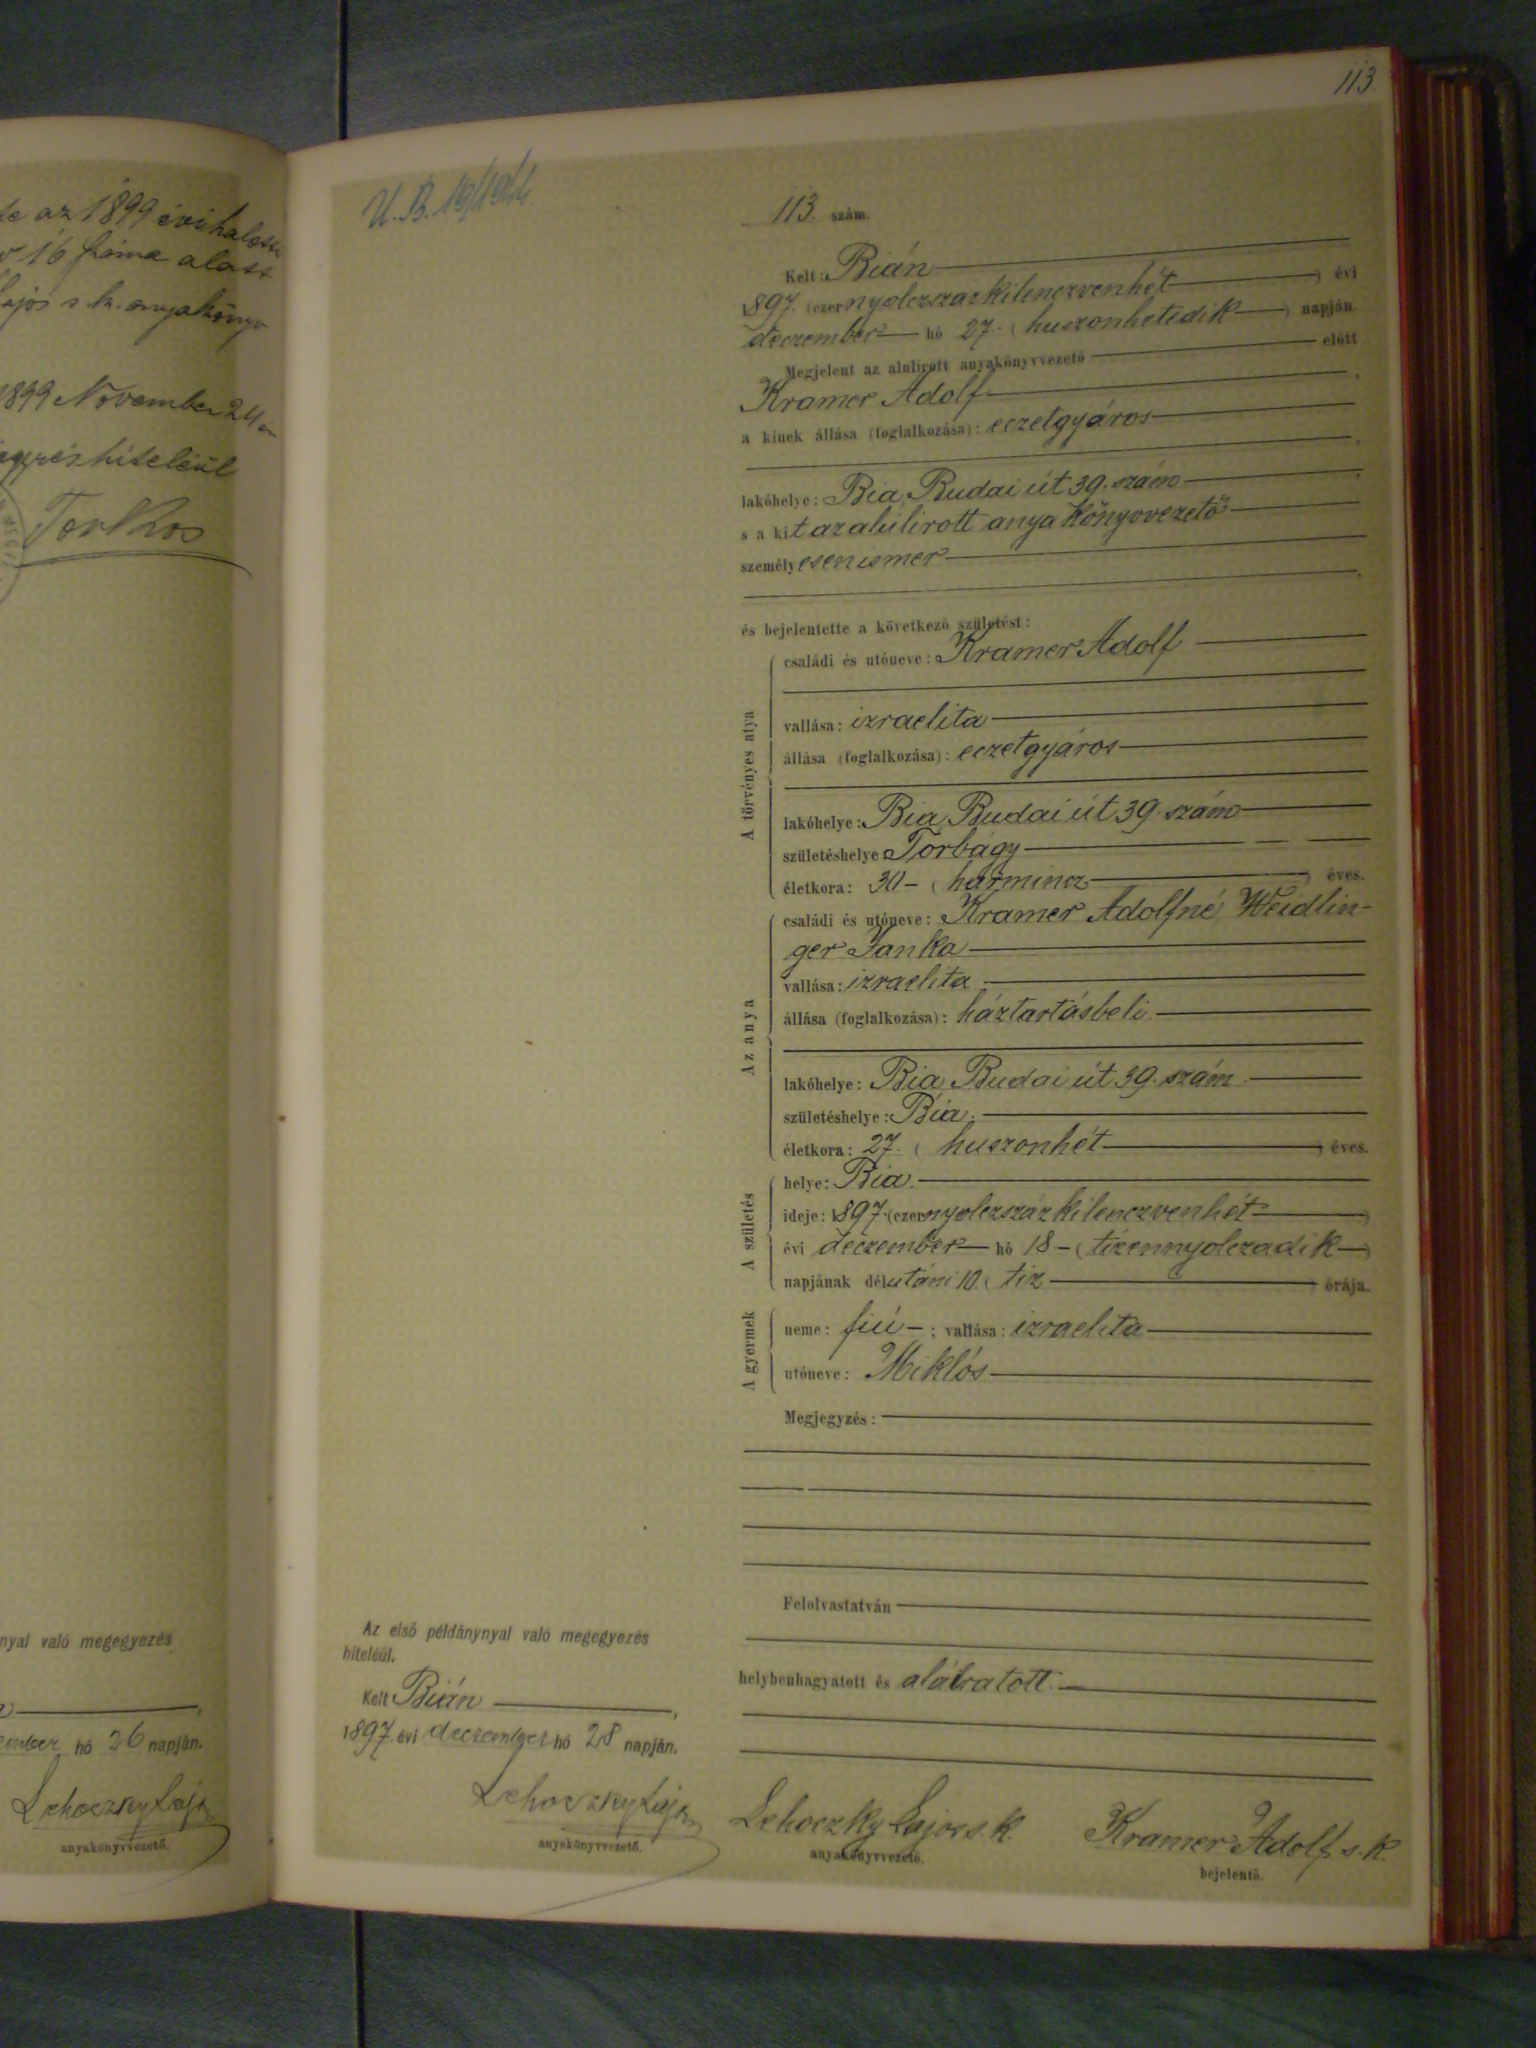 az 1899 évi halotti
16 szám alatt
Lajos s. k. anyakönyv
1899 November 24 én
hiteléül
Torkos
nyal való megegyezés
hó 26 napján.
Lehoczky Lajos
anyakönyvvezető.
113
113. szám.
Kelt: Bián
1897. (ezernyolczszázkilenczvenhét ) évi
deczember hó 27. (huszonhetedik ) napján.
Megjelent az alulirott anyakönyvvezető előtt
Kramer Adolf
a kinek állása (foglalkozása): eczetgyáros
lakóhelye: Bia, Budai út 39. szám
s a kit az alúlirott anyakönyvvezető
személyesen ismer
és bejelentette a következő születést:
A törvényes atya
családi és utóneve: Kramer Adolf
vallása: izraelita
állása (foglalkozása): eczetgyáros
lakóhelye: Bia, Budai út 39. szám
születéshelye Torbágy
életkora: 30 – (harmincz ) éves.
Az anya
családi és utóneve: Kramer Adolfné, Weidlin-
ger Janka
vallása: izraelita
állása (foglalkozása): háztartásbeli
lakóhelye: Bia, Budai út 39. szám
születéshelye: Bia.
életkora: 27. (huszonhét ) éves.
A születés
helye: Bia.
ideje: 1897. (ezernyolczszázkilenczvenhét )
évi deczember hó 18 – (tizennyolczadik )
napjának délutáni 10. (tiz ) órája.
A gyermek
neme: fiú – ; vallása: izraelita
utóneve: Miklós
Megjegyzés:
Felolvastatván
helybenhagyatott és aláiratott.
Az első példánynyal való megegyezés
hiteléül.
Kelt Bián ,
1897. évi deczember hó 28 napján.
Lehoczky Lajos
anyakönyvvezető.
Lehoczky Lajos s. k.
anyakönyvvezető.
Kramer Adolf s. k.
bejelentő.